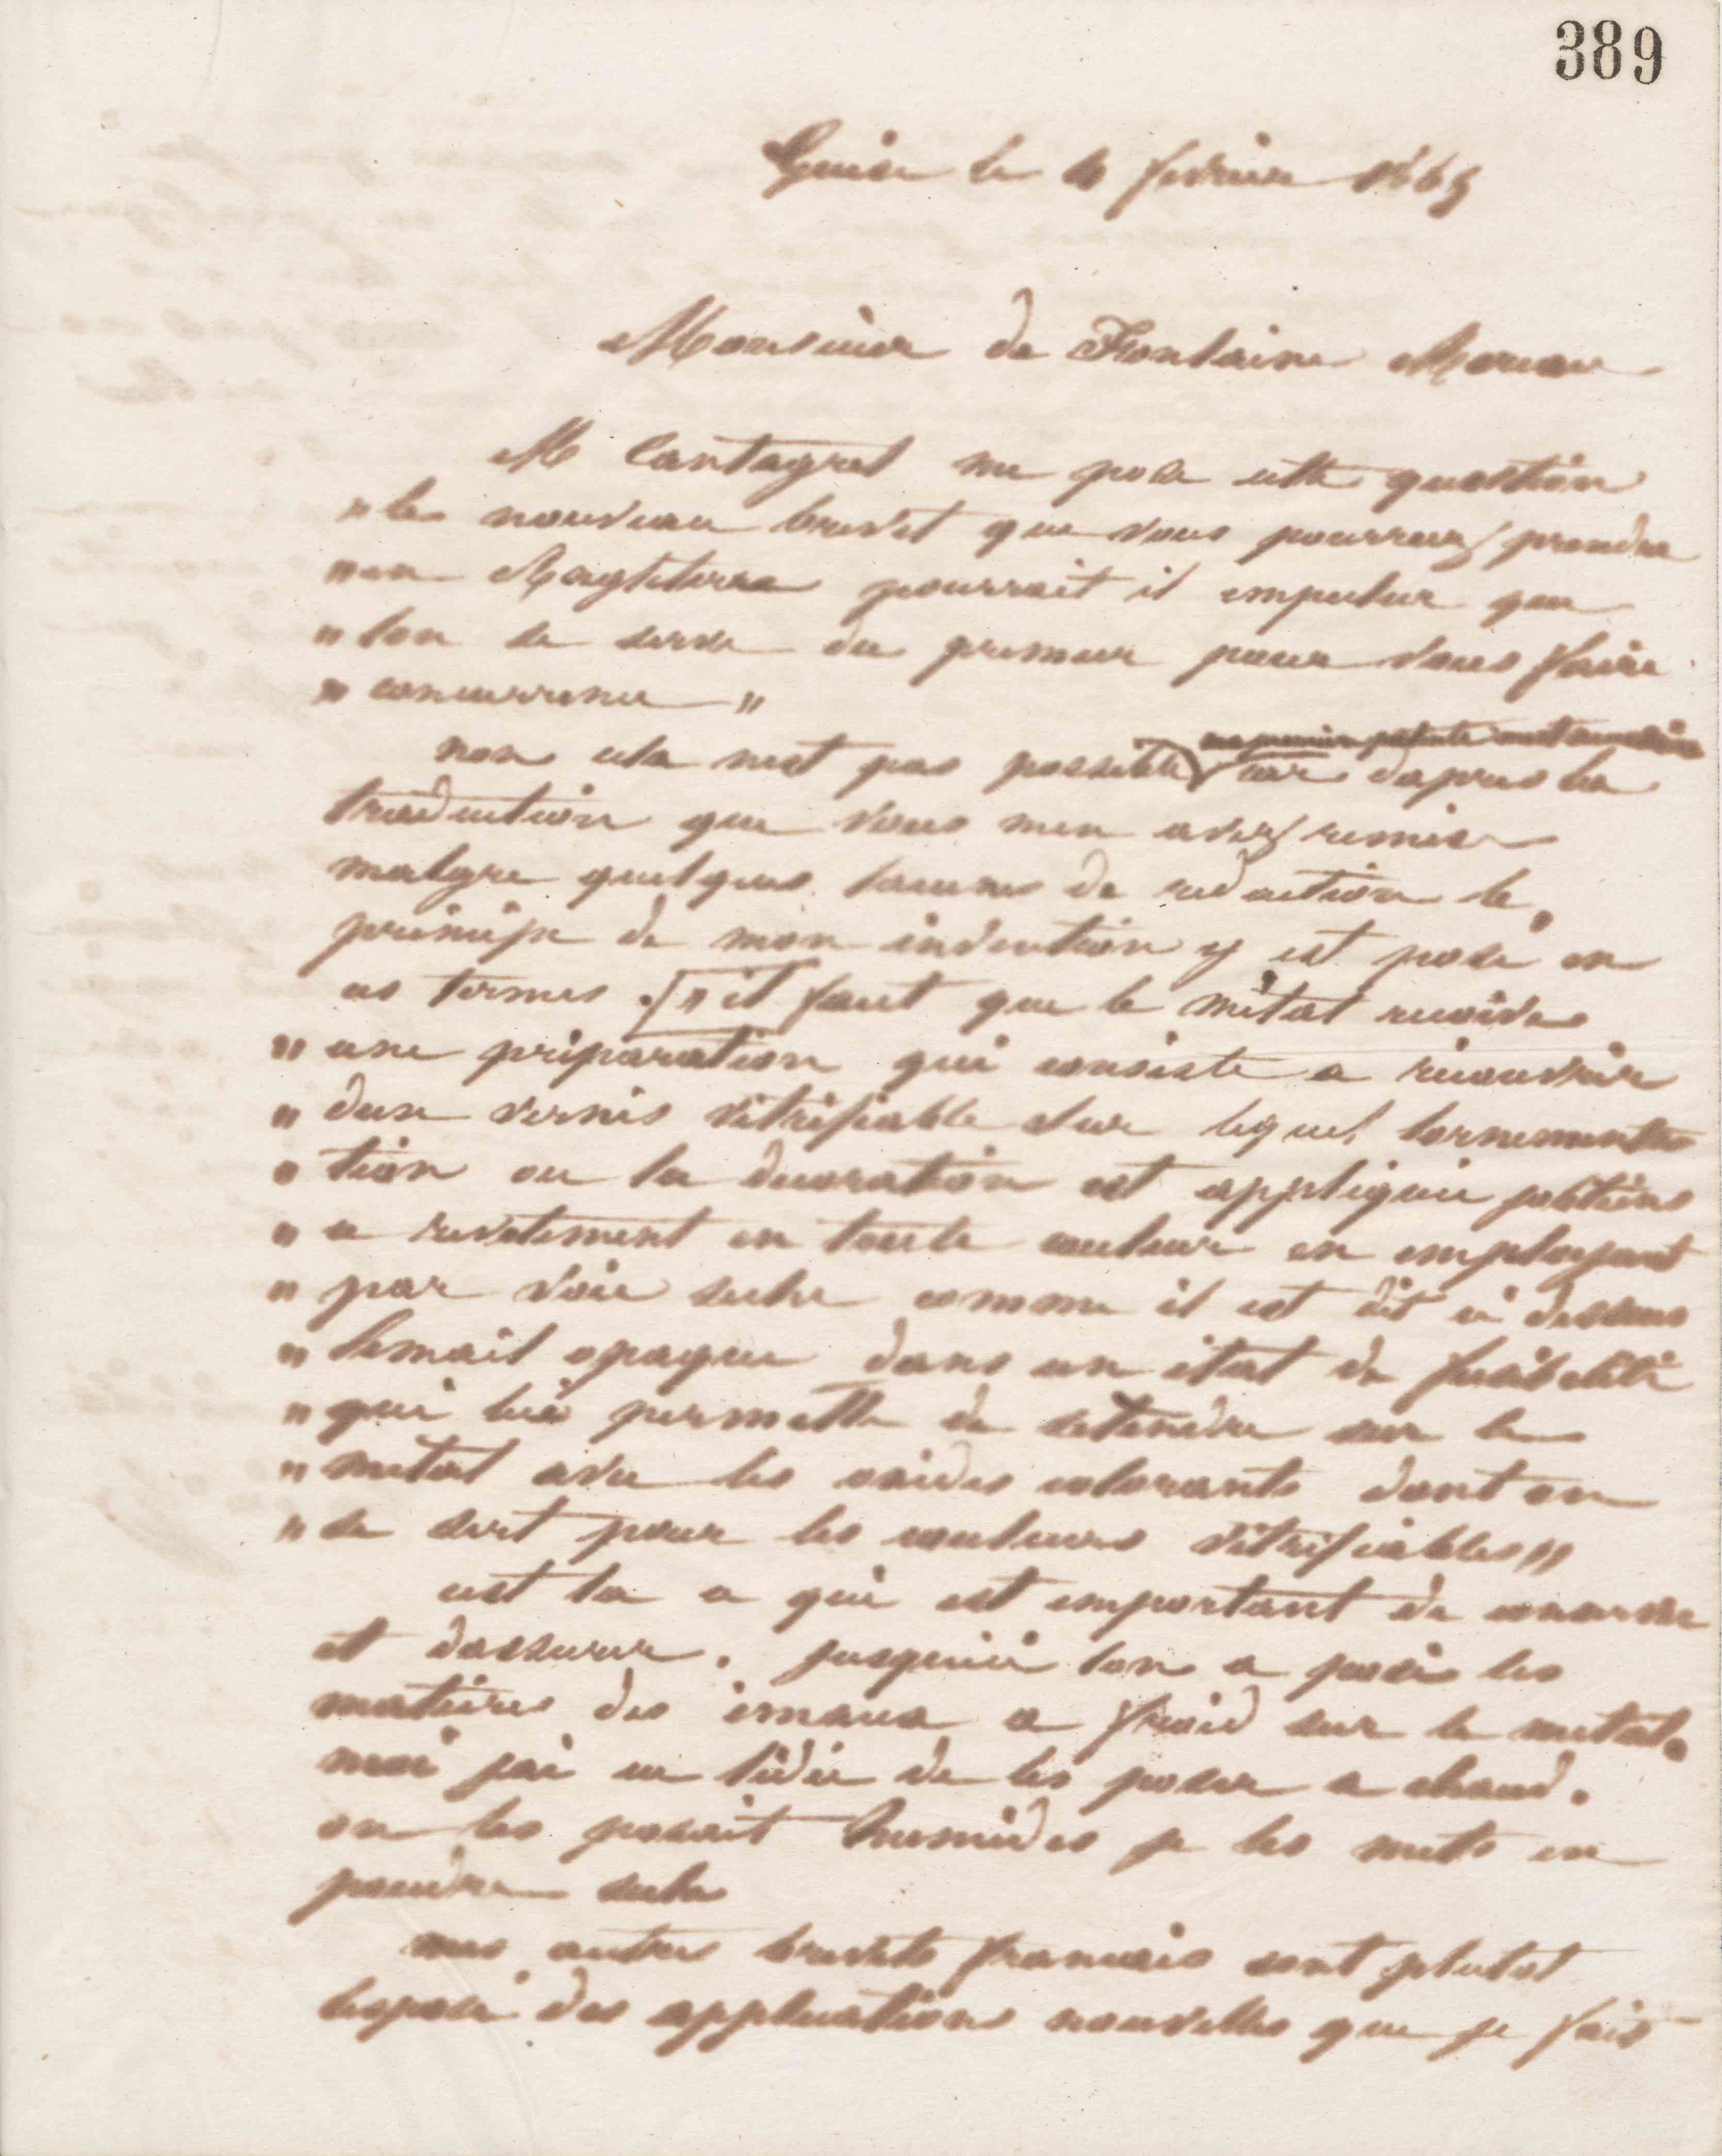 389
Guise le 4 fevrier 1865
Monsieur de Fontaine Moreau
M Cantagrel me pose cette question
" le nouveau brevet que vous pourrez prendre
" en Angleterre pourrait il empecher que
" lon se serve du premier pour vous faire
" concurrence "
non cela nest pas possible car dapres la
traduction que vous men avez remise
malgre quelques lacunes de redaction le
principe de mon invention y est posé en
ces termes . [" il faut que le métal recoive
" une préparation qui consiste a recouvrir
" dun vernis vitrifiable sur lequel lornementa
" tion ou la decoration est appliquée
" ce revetement en toute couleur en employant
" par voie seche comme il est dit ci dessus
" lemail opaque dans un état de fusibilité
" qui lui permette de setendre sur le
" métal avec les oxides colorants dont on
" se sert pour les couleurs vitrifiables "
cest la ce qui est important de conserver
et dassurer . jusquici lon a posé les
matieres des émaux a froid sur le metal.
moi jai eu lidée de les poser a chaud .
on les posait humides je les mets en
poudre seche
mes autres brevets francais sont plutot
lexposé des applications nouvelles que je fais